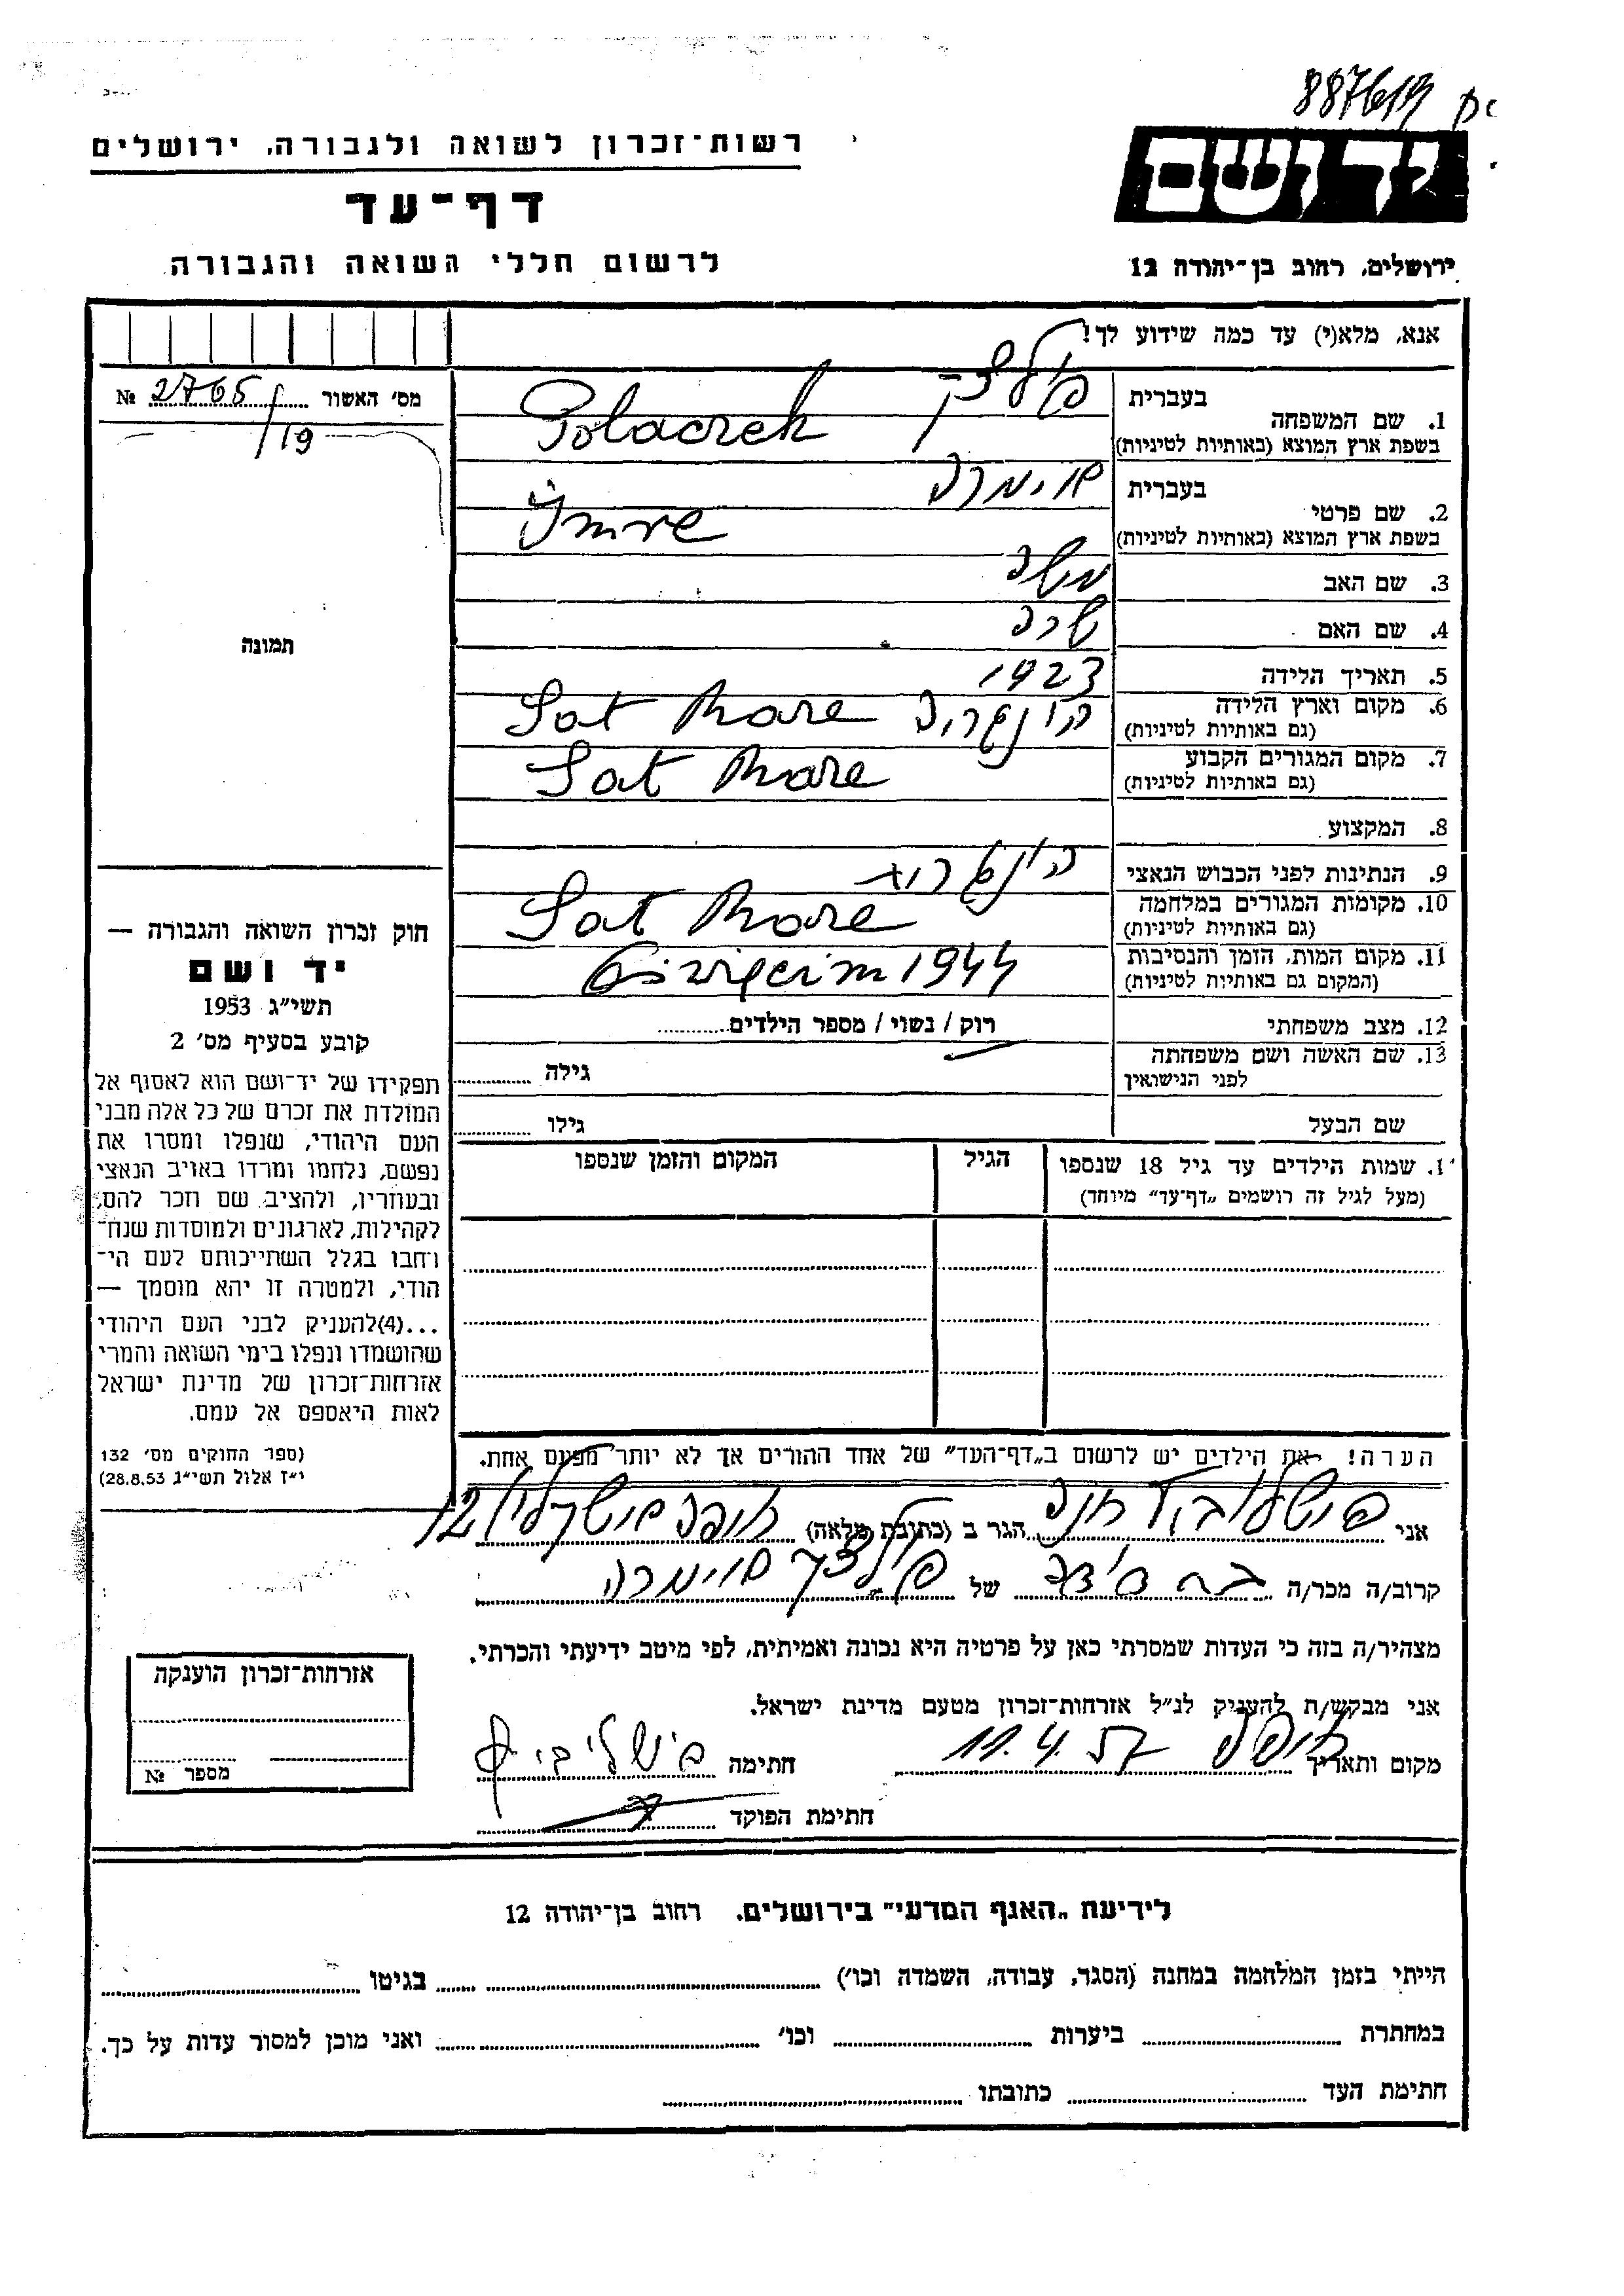 887619
רשות-זכרון לשואה ולגבורה, ירושלים
יד ושם
דף-עד
לרשום חללי השואה והגבורה
ירושלים, רחוב בן-יהודה 12
אנא, מלא(י) עד כמה שידוע לך!
מס' האשור № 2765/19
תמונה
1. שם המשפחה בעברית
בשפת ארץ המוצא (באותיות לטיניות) Polaczek
2. שם פרטי בעברית
בשפת ארץ המוצא (באותיות לטיניות) Imre
3. שם האב משה
4. שם האם שרה
5. תאריך הלידה 1923
6. מקום וארץ הלידה Sat Mare
(גם באותיות לטיניות)
7. מקום המגורים הקבוע Sat Mare
(גם באותיות לטיניות)
8. המקצוע
9. הנתינות לפני הכבוש הנאצי
10. מקומות המגורים במלחמה Sat Mare
(גם באותיות לטיניות)
11. מקום המות, הזמן והנסיבות Oświęcim 1944
(המקום גם באותיות לטיניות)
12. מצב משפחתי רוק / נשוי / מספר הילדים
13. שם האשה ושם משפחתה גילה
לפני הנישואין
שם הבעל גילו
1. שמות הילדים עד גיל 18 שנספו הגיל המקום והזמן שנספו
(מעל לגיל זה רושמים „דף-עד" מיוחד)
חוק זכרון השואה והגבורה —
יד ושם
תשי"ג 1953
קובע בסעיף מס' 2
תפקידו של יד-ושם הוא לאסוף אל
המולדת את זכרם של כל אלה מבני
העם היהודי, שנפלו ומסרו את
נפשם, נלחמו ומרדו באויב הנאצי
ובעוזריו, ולהציב שם וזכר להם,
לקהילות, לארגונים ולמוסדות שנח-
רבו בגלל השתייכותם לעם הי-
הודי, ולמטרה זו יהא מוסמך —
...(4)להעניק לבני העם היהודי
שהושמדו ונפלו בימי השואה והמרי
אזרחות-זכרון של מדינת ישראל
לאות היאספם אל עמם.
(ספר החוקים מס' 132
י"ז אלול תשי"ג 28.8.53)
הערה! את הילדים יש לרשום ב„דף-העד" של אחד ההורים אך לא יותר מפעם אחת.
אני הגר ב (כתובת מלאה) 12
קרוב/ה מכר/ה של
מצהיר/ה בזה כי העדות שמסרתי כאן על פרטיה היא נכונה ואמיתית, לפי מיטב ידיעתי והכרתי.
אני מבקש/ת להעניק לנ"ל אזרחות-זכרון מטעם מדינת ישראל.
מקום ותאריך חיפה 11.4.57 חתימה
חתימת הפוקד
אזרחות-זכרון הוענקה
מספר №
לידיעת „האגף המדעי" בירושלים. רחוב בן-יהודה 12
הייתי בזמן המלחמה במחנה (הסגר, עבודה, השמדה וכו') בגיטו
במחתרת ביערות וכו' ואני מוכן למסור עדות על כך.
חתימת העד כתובתו